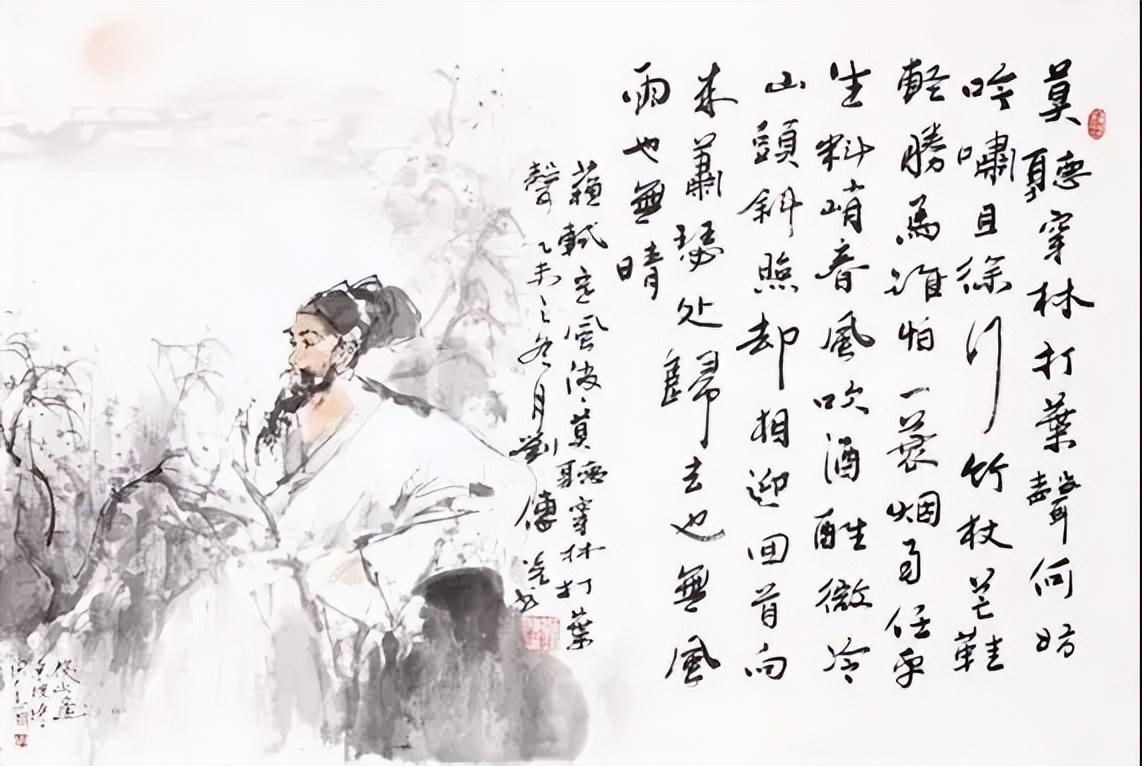 莫聽穿林打葉聲何妨
吟嘯且徐行竹杖芒鞋
輕勝馬誰怕一蓑烟雨任平
生料峭春風吹酒醒微冷
山頭斜照却相迎回首向
來蕭瑟处歸去也無風
雨也無晴
蘇軾定風波莫聽穿林打葉
聲乙未之冬月劉傳